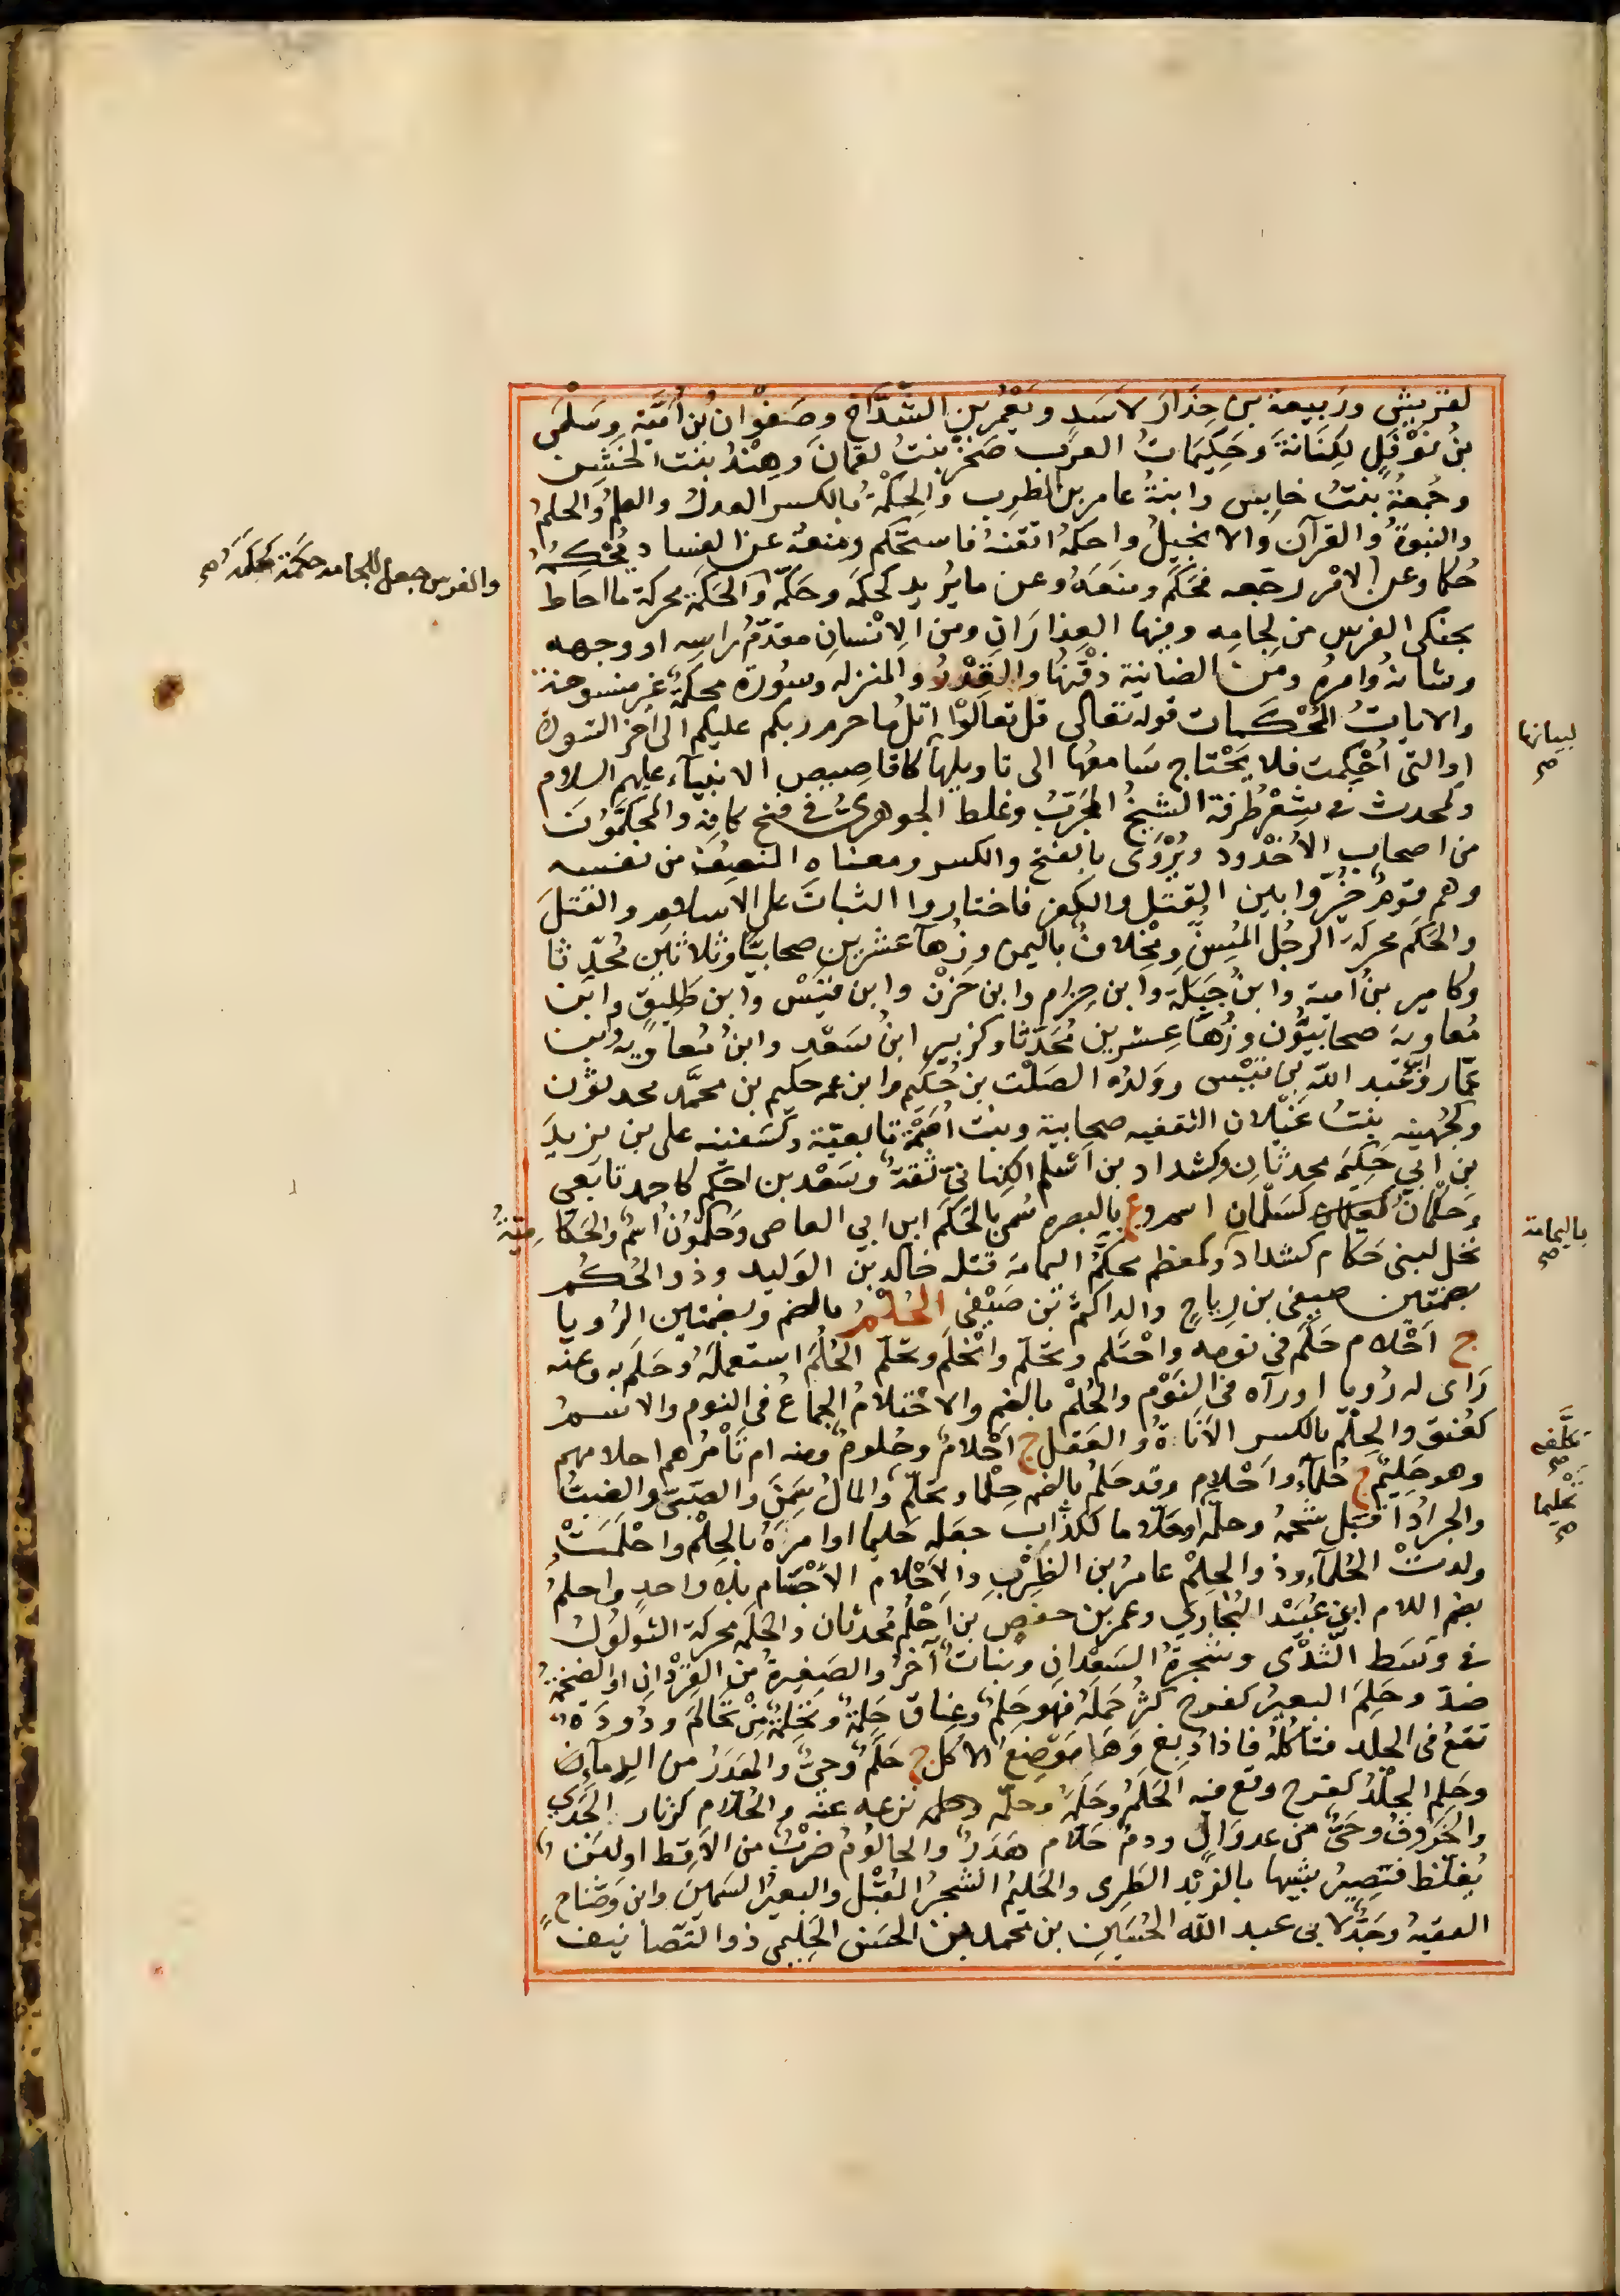 لقريش وربيعة بن حذار لاسد ويعمر بن الشداخ وصفوان بن أمية وسلمى
بن نوفل لكنانة وحكيمات العرب صخر بنت لقمان وهند بنت الخس
وجمعة بنت حابس وابنة عامر بن الظرب والحكمة بالكسر العدل والعلم والحلم
والنبوة والقرآن والانجيل واحكمه اتقنه فاستحكم ومنعه عن الفساد كحكمه
حكما وعن الامر رجعه فحكم ومنعه وعن ما يريد كحكمه وحكمه والحكمة محركة ما احاط
والفرس جعل للجامه حكمة كحكمه صح
بحنكى الفرس من لجامه وفيها العذاران ومن الانسان مقدم راسه او وجهه
وشانه وامره ومن الضانية ذقنها والقدر والمنزله وسورة محكمة غير منسوخة
والايات المحكمات قوله تعالى قل تعالوا اتل ما حرم ربكم عليكم الى آخر السورة
او التي أحكمت فلا يحتاج سامعها الى تاويلها كاقاصيص الانبيآء عليهم السلام
لبيانها صح
وكمحدث في شعر طرفة الشيخ المجرب وغلط الجوهري في فتح كافه والمحكمون
من اصحاب الاخدود ويروى بالفتح والكسر ومعناه المنصف من نفسه
وهم قوم خيروا بين القتل والكفر فاختاروا الثبات على الاسلام والقتل
والحكم محركة الرجل المسن ومخلاف باليمن وزهآ عشرين صحابيا وثلاثين محدثا
وكامير بن امية وابن جبلة وابن حزام وابن حزن وابن قيس وابن طليق وابن
معاوية صحابيون وزها عشرين محدثا وكزبير ابن سعد وابن معاوية وابن
عمار وعبد الله بن قيس وولده الصلت بن حكيم وابن عمه حكيم بن محمد محدثون
وكجهينه بنت غيلان الثقفيه صحابية وبنت اميمة تابعية وكسفينه على بن يزيد
بن ابي حكيمة محدثان وكشداد بن اسلم الكناني ثقة وسعد بن احكم كاحمد تابعي
وحكمان كسلمان اسم وع بالبصره سمى بالحكم ابن ابي العاص وحكمون اسم والحكامية
نخل لبنى حكام كشداد وكمعظم محكم اليمامة قتله خالد بن الوليد وذو الحكم
باليمامة صح
بضمتين صيفى بن رباح والد اكثم بن صيفى الحلم بالضم وبضمتين الرويا
ج احلام حلم فى نومه واحتلم وتحلم وانحلم وتحلم الحلم استعمله وحلم به وعنه
راى له رويا او رآه فى النوم والحلم بالضم والاحتلام الجماع فى النوم والاسم
كعنق والحلم بالكسر الاناة والعقل ج احلام وحلوم ومنه ام تأمرهم احلامهم
تكلفه صح
وهو حليم ج حلمآء واحلام وقد حلم بالضم حلما وتحلم والمال سمن والصبي والضب
والجراد اقبل شحمه وحلمه وحلاما ككذاب جعله حليما او امره بالحلم واحلمت
تحليما صح
ولدت الحلمآء وذو الحلم عامر بن الظرب والاحلام الاجسام بلا واحد واحلم
بضم اللام ابن عبيد البخاري وعمر بن حفص بن احلم محدثان والحلمة محركة الثولول
في وسط الثدى وشجرة السعدان ونبات آخر والصغيرة من القردان او الضخمة
ضد وحلم البعير كفرح كثر حمله فهو حلم وعناق حلمة وتحلمة من تحالم ودودة
تقع فى الجلد فتاكله فاذا دبغ وها موضع الاكل ج حلم وحي والهدر من الدمآء
وحلم الجلد كفرح وقع فيه الحلم وحلمه وحلمه نزعه عنه والحلام كزنار الجدي
والخروف وحى من عدوان ودم حلام هدر والحالوم ضرب من الاقط او لبن
يغلظ فيصير شبيها بالزبد الطرى والحليم الشجر المقبل والبعير السمين وابن وضاح
الفقيه وجد لابى عبد الله الحسين بن محمد بن الحسن الحليمى ذو التصانيف